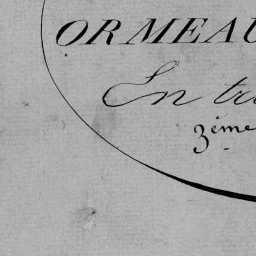 ORMEAU
En tr
3éme